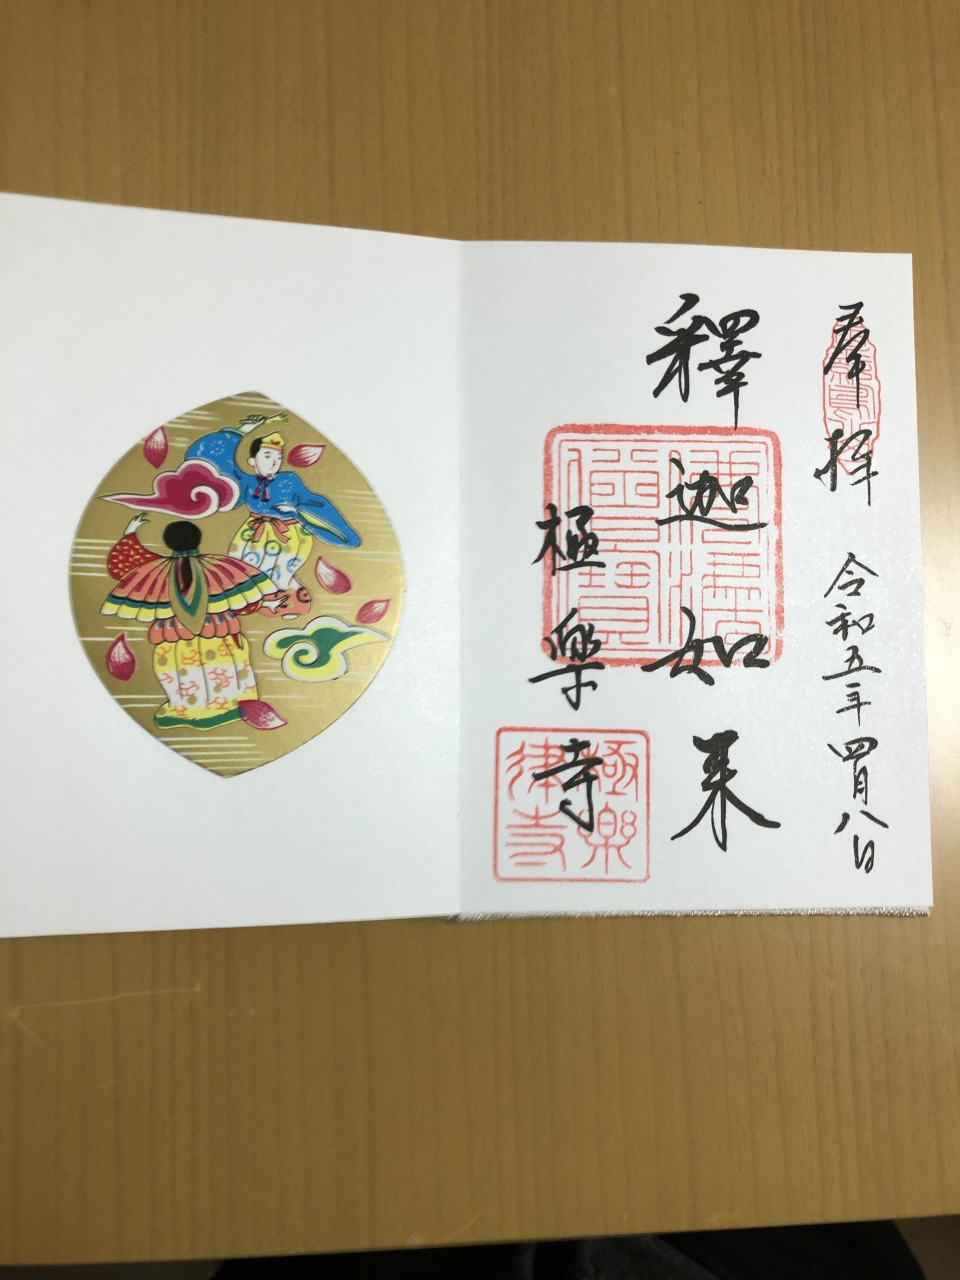 奉拝 令和五年四月八日
釋迦如来
極楽寺
佛法僧寳
極樂律寺